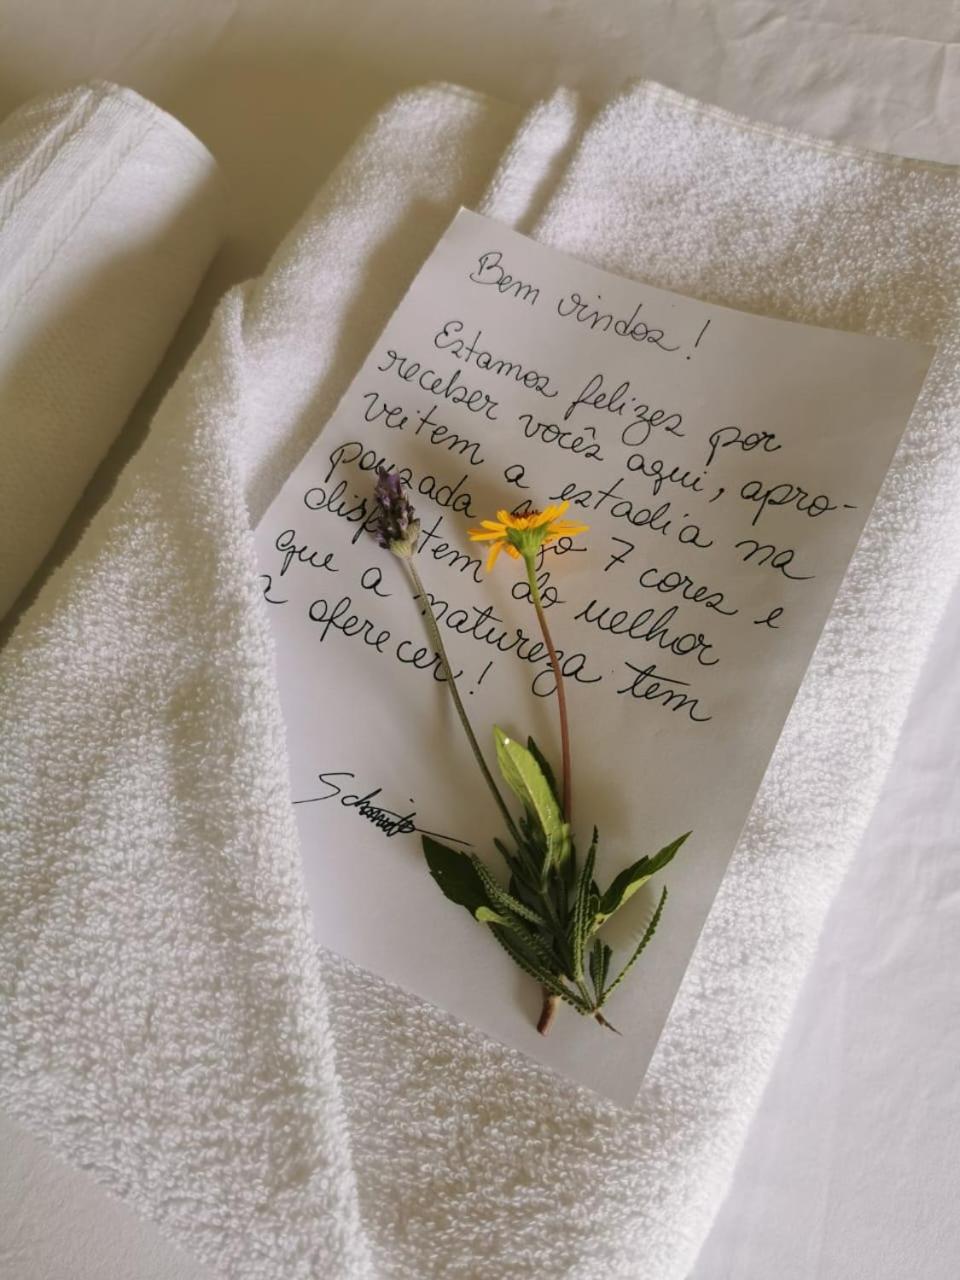 Bem vindos!
Estamos felizes por
receber vocês aqui, apro-
veitem a estadia na
pousada 7 cores e
disfrutem do melhor
que a natureza tem
a oferecer!
Schmidt